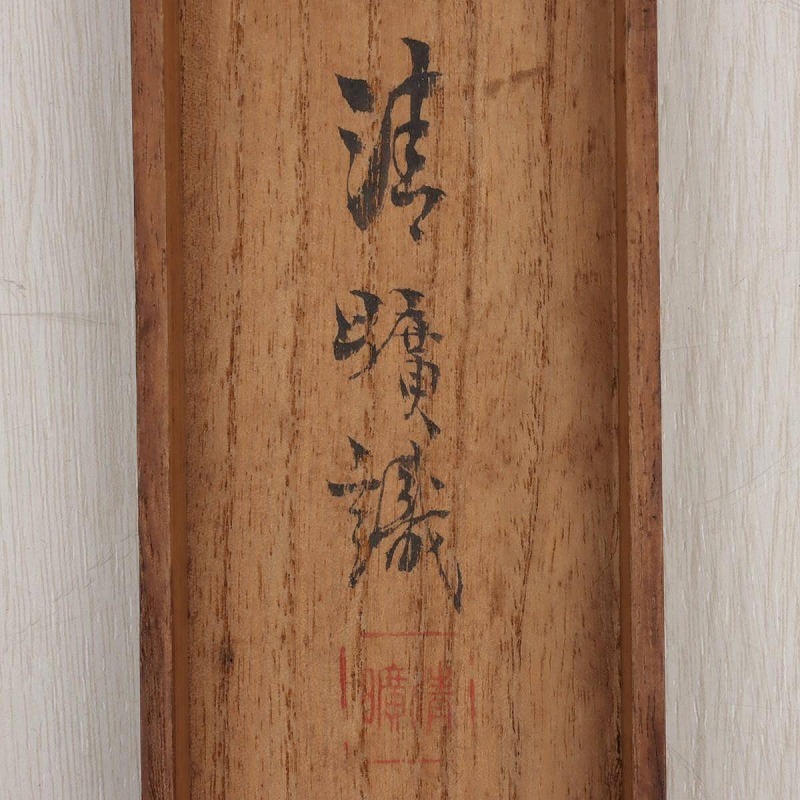 清曠識
清曠